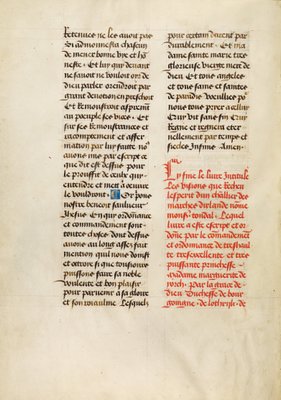 retenues ne les auoit par
Si admonnesta chascun
de mener bonne vie et ho
neste. Et luy qui deuant
ne sauoit ne vouloit oir de
dieu parler orendroit par
grant deuotion en preschoit
Et Remonstroit asprement
au poeuple ses vices. Et
sur ses Remonstrances et
et affer
mation par luy faite no9
auons mis par escript ce
que dit est dessus pour
le prouffit de ceulx qui
entendre et mettre a oeuure
le vouldront.
nostre benoit sauueur
Jhesus En qui ordonnance
et commandement sont
toutes choses dont dessus
auons au long assez fait
mention quil nous donist
et octroye que tousiours
puissons faire sa noble
voulente et bon plaisir
pour paruenir a sa gloire
et son roiaulme Lesquelz
pour certain durent par
durablement. Et ma
dame sainte marie tres
glorieuse vierge mere de
dieu Et tous angeles
et tous sains et saintes
de paradis vueillies por
nous tous prier a celluy
Qui vit sans fin Qui
Regne et regnera eter
nellement par temps et
siecles Infinis Amen.
Cy fine le liure Intitule
Les visions que Recheu
lesperit dun chlier des
marches dirlande nomme
mons.r tondal. Lequel
liure a este escript et or
donne par le comandement
et ordonnance de treshaulte
tresexcellente et tres
puissante princhesse
Madame marguerite de
yorch. par la grace de
dieu Duchesse de bour
goingne, de lothrijk, de